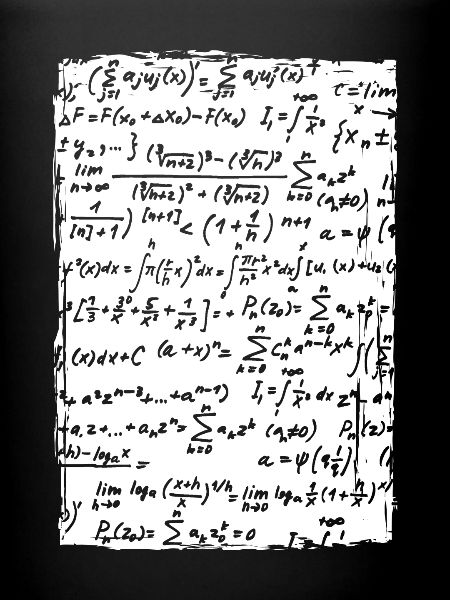 (∑ⁿⱼ₌₁ aⱼuⱼ(x))' = ∑ⁿⱼ₌₁ aⱼuⱼ'(x) + c = lim x→
ΔF = F(x₀ + Δx₀) − F(x₀) I₁ = ∫₁⁺∞ 1/x³ {xₙ ±
± y₂, ... } lim n→∞ ((∛(n+2))³ − (∛n)³) / ((∛(n+2))² + (∛(n+2)) ∑ⁿₖ₌₀ aₖzᵏ (aₙ≠0)
1/([n]+1)) [n+1] < (1 + 1/n) n+1 a = ψ (q
y³(x)dx = ∫ʰ₀ π(r/h x)² dx = ∫ʰ₀ πr²/h² x² dx ∫ˣₐ [u₁ (x) + u₂ (
³ [7/3 + 3⁰/x + 5/x² + 1/x³] = + Pₙ(z₀) = ∑ⁿₖ₌₀ aₖ z₀ᵏ =
(x)dx + C (a + x)ⁿ = ∑ⁿₖ₌₀ Cₙᵏ aⁿ⁻ᵏ xᵏ ∫(∑ⁿⱼ₌₁
+ a²zⁿ⁻³ + ... + aⁿ⁻¹) I₁ = ∫₁⁺∞ 1/x³ dx zⁿ − aⁿ
+ a₁z + ... + aₙzⁿ = ∑ⁿₖ₌₀ aₖzᵏ (aₙ≠0) Pₙ(z) =
+h) − logₐx = a = ψ(q 1/q)
lim h→0 logₐ (x+h / x)^1/h = lim h→0 logₐ 1/x (1 + h/x)ˣ
)' Pₙ(z₀) = ∑ⁿ aₖz₀ᵏ = 0 I = ∫⁺∞ 1